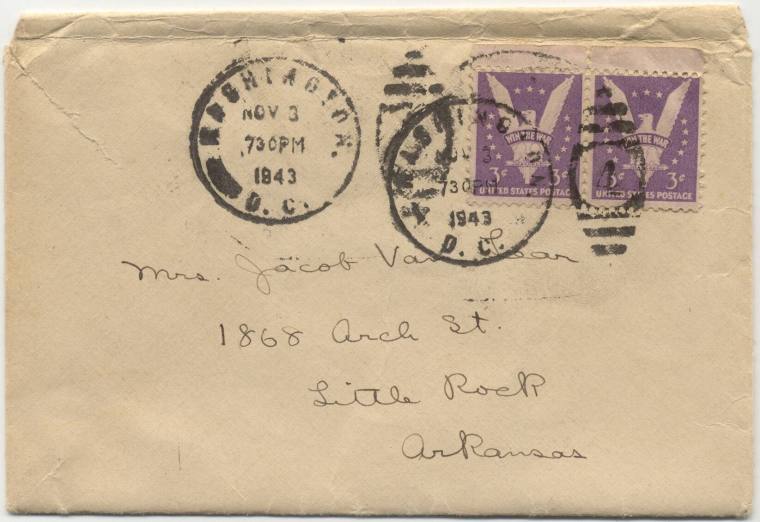 WASHINGTON,
NOV 3
730PM
1943
D. C.
WASHING
NOV 3
730PM
1943
D. C.
WIN THE WAR
3¢ 3¢
UNITED STATES POSTAGE
WIN THE WAR
3¢
UNITED STATES POSTAGE
Mrs. Jacob Van
1868 Arch St.
Little Rock
Arkansas